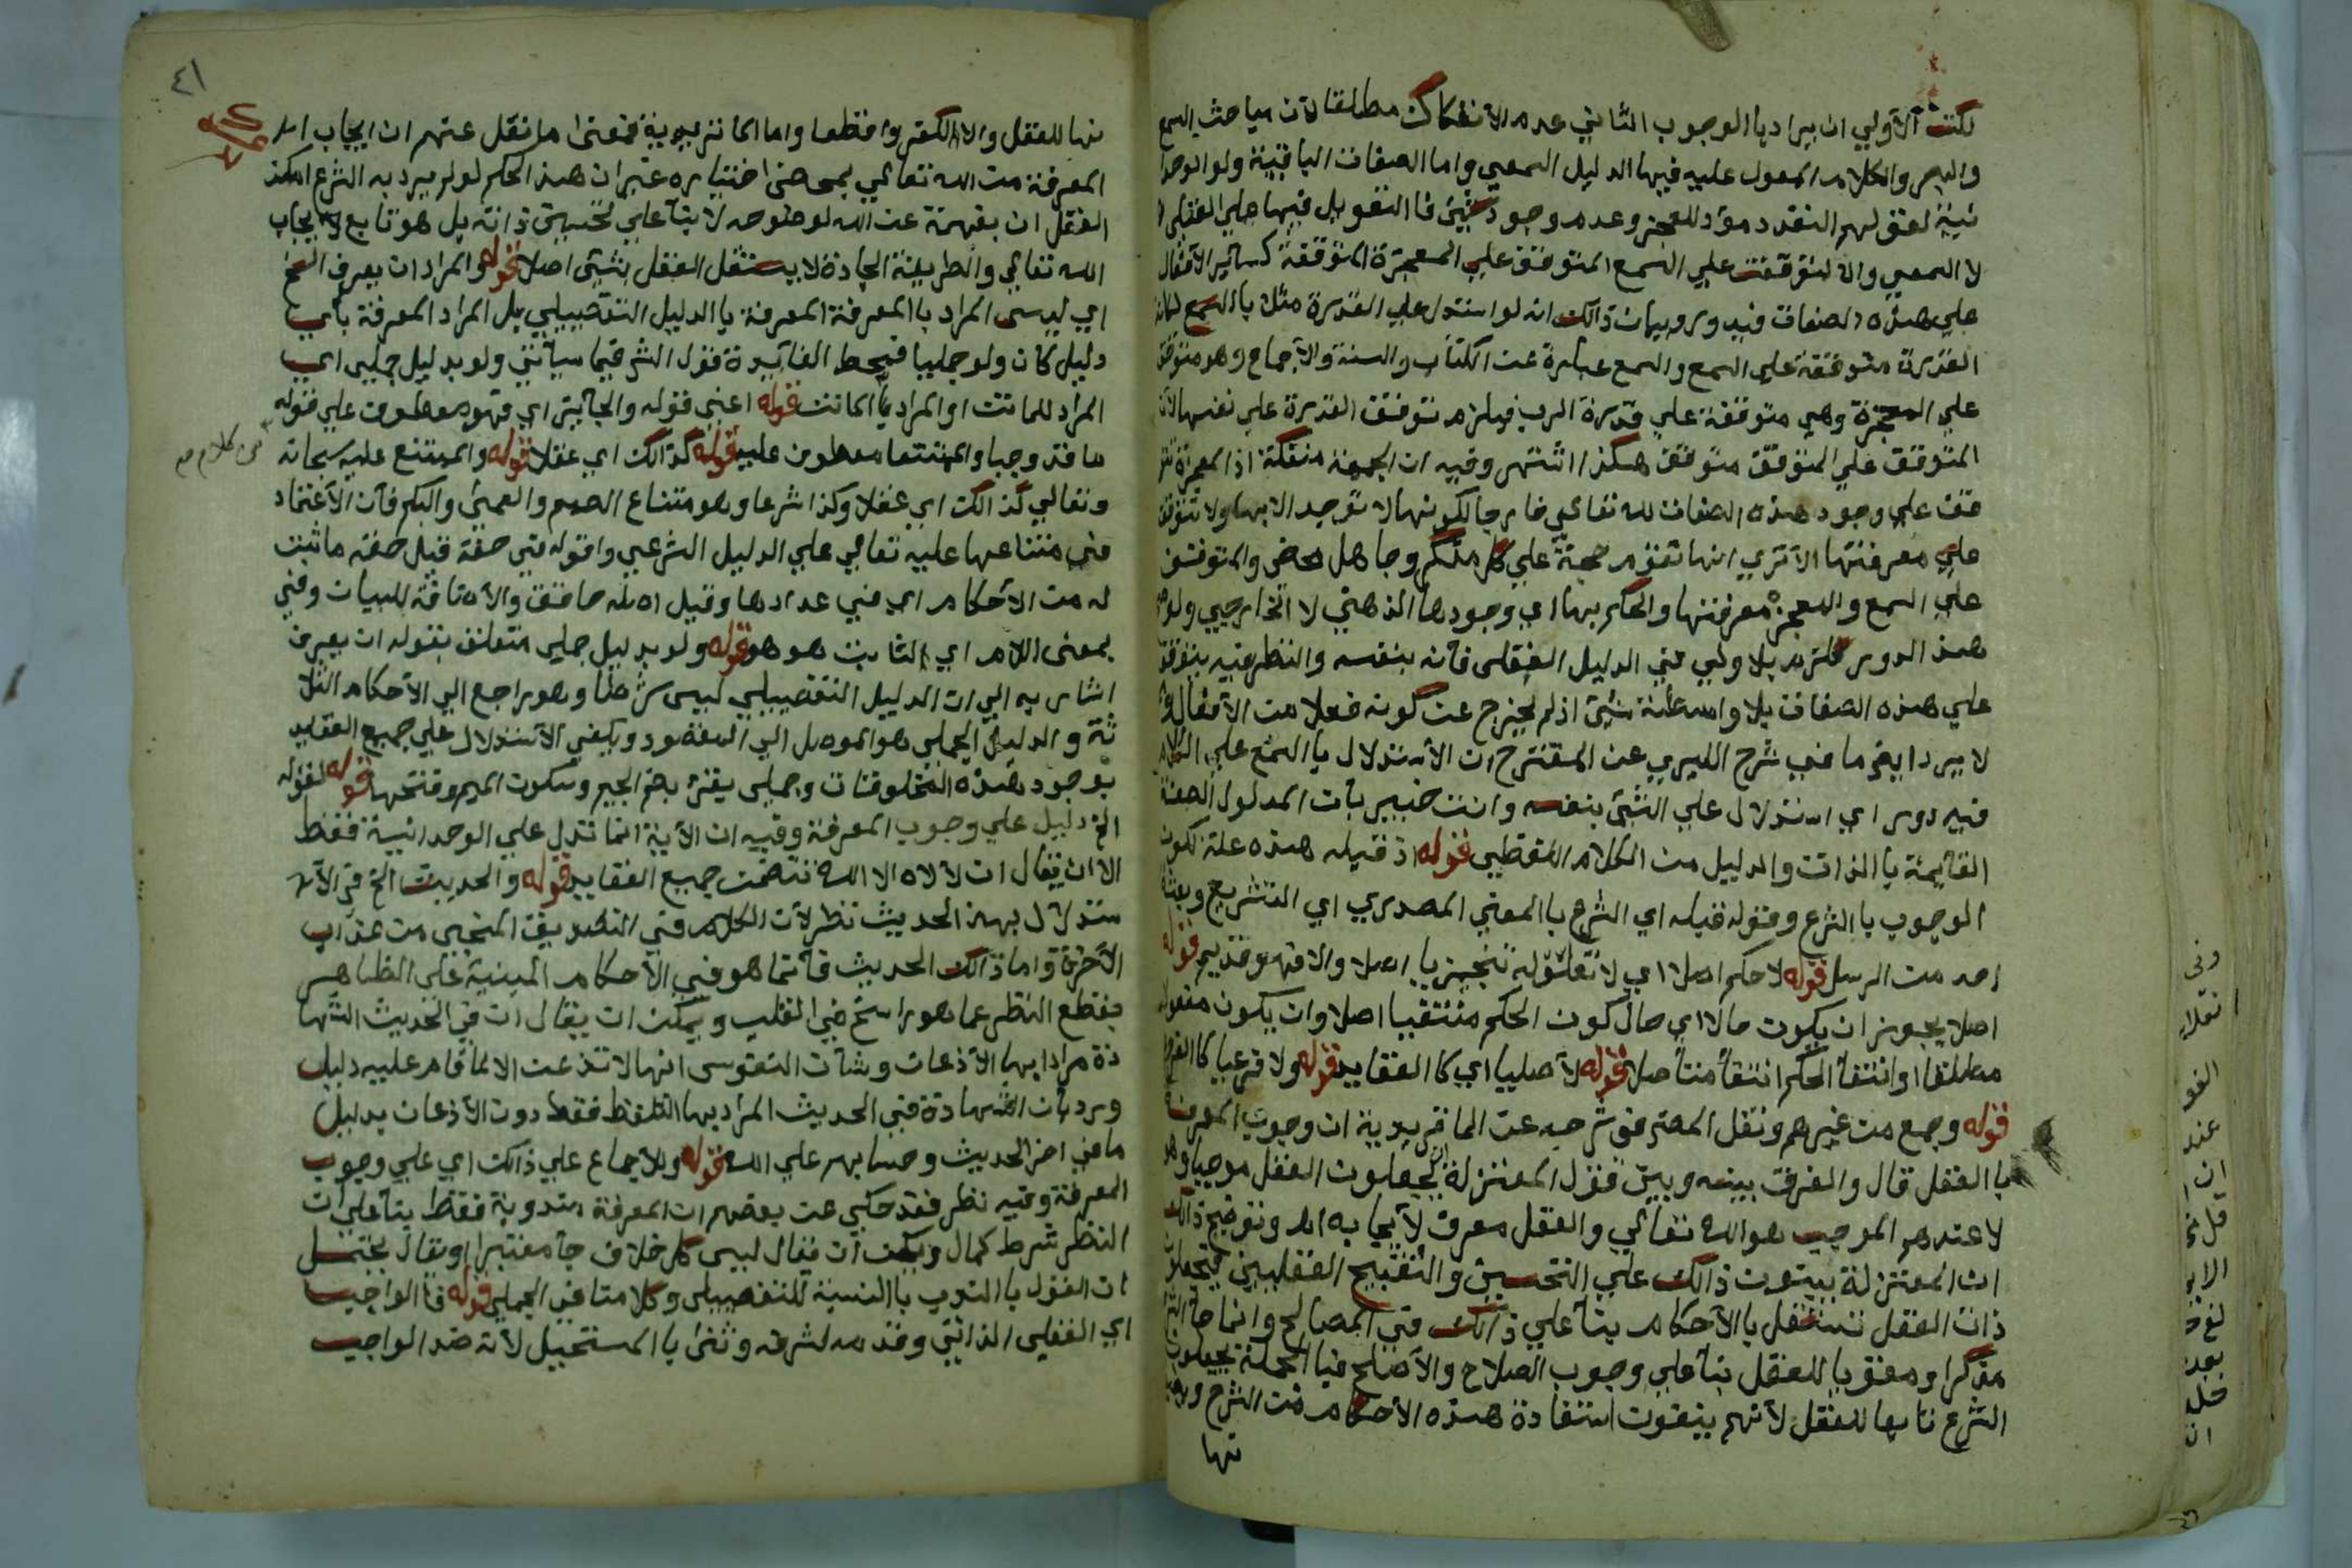 لكن الأولي ان يراد با الوجوب الثاني عدم الأنفكاك مطلقا لأن مباحث السمع
والبصر والكلام المعول عليه فيها الدليل السمعي واما الصفات الباقية ولو الوحدا
نية لقولهم التعدد مؤد للعجز وعدم وجود شيئ فا التعويل فيها علي العقلي
لا السمعي والا لتوقفت علي السمع المتوقف علي المعجزة المتوقفة كسائر الأفعال
علي هذه الصفات فيدور وبيان ذالك انه لو استدل علي القدرة مثلا با السمع لكانت
القدرة متوقفة علي السمع والسمع عبارة عن الكتاب والسنة والأجماع وهو متوقف
علي المعجزة وهي متوقفة علي قدرة الرب فيلزم توقف القدرة علي نفسها لأن
المتوقف علي المتوقف متوقف هكذا اشتهر وفيه ان الجهة منفكة اذ المعجزة تتو
قف علي وجود هذه الصفات لله تعالي خارجا لكونها لا توجد الا بها ولا تتوقف
علي معرفتها الأ تري انها تقوم حجة علي كل منكر وجاهل محض والمتوقف
علي السمع والمعجزة معرفتها والحكم بها اي وجودها الذهني لا الخارجي ولو
هذا الدور للزم بلا ولي في الدليل العقلي فأنه بنفسه والنظر فيه يتوقف
علي هذه الصفات بلا واسطة شيئ اذ لم يخرج عن كونه فعلا من الأفعال
لا يرد ايضا ما في شرح الكبري عن المقترح ان الأستدلال با السمع علي الكلام
فيه دور اي استدلال علي الشيئ بنفسه وانت خبير بأن المدلول الصفة
القايمة با الذات والدليل من الكلام اللفظي قوله اذ قبله هذه علة لكون
الوجوب با الشرع وقوله قبله اي الشرع با المعني المصدري اي التشريع وبعثة
احد من الرسل قوله لا حكم اصلا اي لا تعلق له تنجيزيا اصلا والا فهو قديم قوله
اصلا يجوز ان يكون حالا اي حال كون الحكم منتفيا اصلا وان يكون مفعولا
مطلقا اوانتفأ الحكم انتفأ متأصلا قوله لأصليا اي كا العقايد قوله ولا فرعيا كا الفرو
قوله وجمع من غيرهم ونقل المص في شرحه عن الماتريدية ان وجوب المعرفة
با العقل قال والفرق بينه وبين قول المعتزلة ان يجعلون العقل موجبا وهو
لا عندهم الموجب هو الله تعالي والعقل معرف لأيجابه اه وتوضيح ذالك
ان المعتزلة يبنون ذالك علي التحسين والتقبيح العقليين فيجعلون
ذات العقل تستقل با الأحكام بنأ علي ذالك في المصالح وانما جأ الشر
مذكرا ومقويا للعقل بنأ علي وجوب الصلاح والأصلح فبا الجملة يجعلون
الشرع تابعا للعقل لأنهم ينفون استفادة هذه الأحكام من الشرع
تها
٤١
نها للعقل والا لكفروا قطعا واما الماتريدية فمعني ما نقل عنهم ان ايجاب اله
المعرفة من الله تعالي بمحض اختياره غير ان هذا الحكم لو لم يرد به الشرع امكن
العقل ان يفهمه عن الله لوضوحه لا بنأ علي تحسين ذاته بل هو تابع لأيجاب
الله تعالي والطريقة الجادة لا يستقل العقل بشئ اصلا قوله والمراد ان يعرف الخ
اي ليس المراد با المعرفة المعرفة با الدليل التفصيلي بل المراد المعرفة بأي
دليل كان ولو جمليا فمحط الفايدة قول الش فيما سيأتي ولو بدليل جملي اي
المراد للماتن او المراد با الماتن قوله اعني قوله والجآيز اي فهو معطوف علي قوله
ما قد وجبا والممتنعا معطوف عليه قوله كذالك اي عقلا قوله والممتنع عليه سبحانه
وتعالي كذالك اي عقلا وكذا شرعا وهو امتناع الصمم والعمى والبكم فأن الأعتماد
في امتناعها عليه تعالي علي الدليل الشرعي وقوله في حقه قيل حقه ما ثبت
له من الأحكام اي في عدادها وقيل اه له حا فق والأضافة للبيان وفي
بمعنى اللام اي الثابت هو هو قوله ولو بدليل جملي متعلق بقوله ان يعرف
اشار به الي ان الدليل التفصيلي ليس شرطا وهو راجع الي الأحكام الثلا
ثة والدليل الجملي هو الموصل الي المقصود ويكفي الأستدلال علي جميع العقايد
بوجود هذه المخلوقات وجملي يقرء بضم الجيم وسكون الميم وفتحها قوله لقوله
الخ دليل علي وجوب المعرفة وفيه ان الأية انما تدل علي الوحدانية فقط
الا ان يقال ان لا اله الا الله تضمن جميع العقايد قوله والحديث الخ في الأ
ستدلال بهذا الحديث نظر لأن الكلام في التصديق المنجي من عذاب
الأخرة واما ذالك الحديث فأنما هو في الأحكام المبنية علي الظاهر
بقطع النظر عما هو راسخ في القلب ويمكن ان يقال ان في الحديث الشها
دة مرادا بها الأذعان وشأن النفوس انها لا تذعن الا لما قام عليه دليل
ورد بأن الشهادة في الحديث المراد بها التلفظ فقط دون الأذعان بدليل
ما في اخر الحديث وحسابهم علي الله قوله وللأجماع علي ذالك اي علي وجوب
المعرفة وفيه نظر فقد حكي عن بعضهم ان المعرفة مندوبة فقط بنأ علي ان
النظر شرط كمال ويمكن ان يقال ليس كل خلاف جأ معتبرا او يقال يحتمل
ان القول با الندب با النسبة للتفصيلي وكلامنا في الجملي قوله فا الواجب
اي العقلي الذاتي وقدمه لشرفه وثنى با المستحيل لأنه ضد الواجب